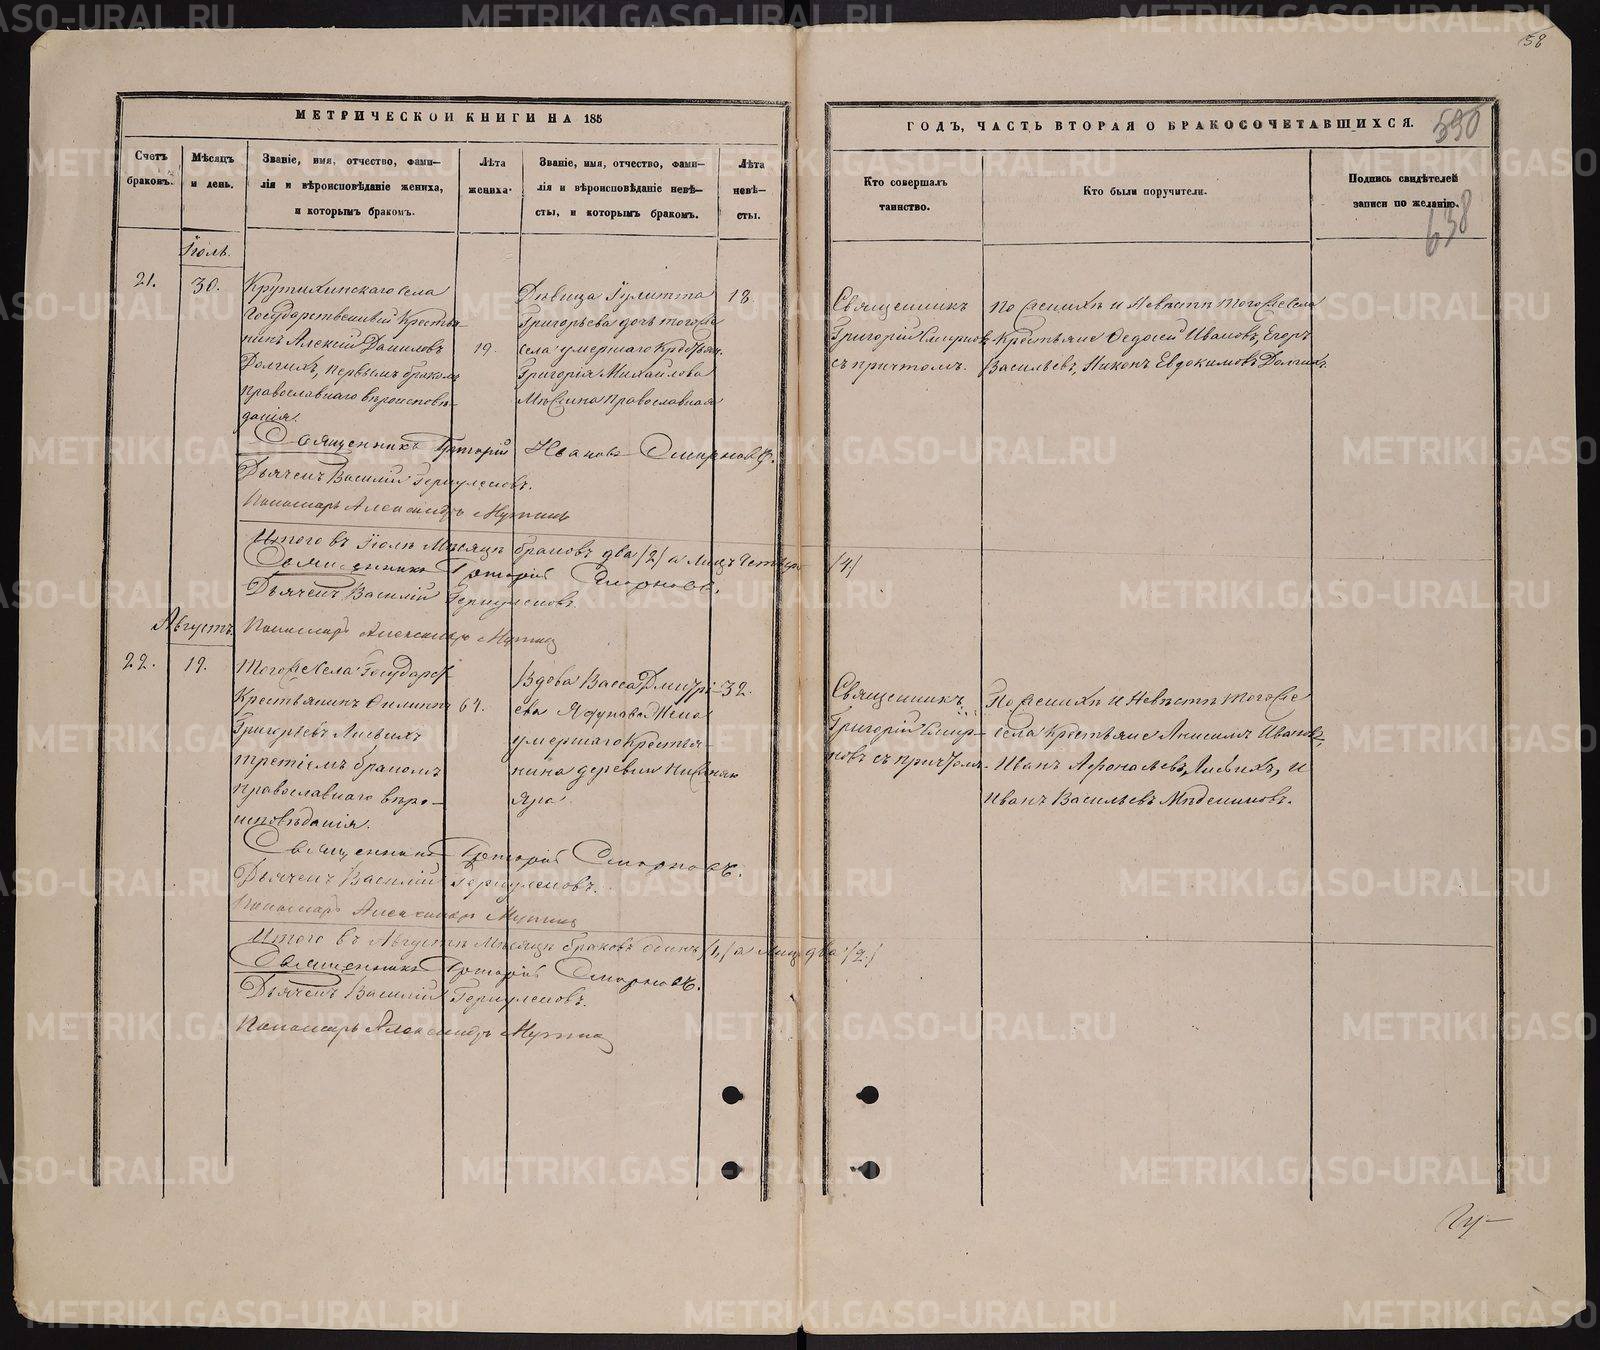 58
МЕТРИЧЕСКОЙ КНИГИ НА 185
ГОДЪ, ЧАСТЬ ВТОРАЯ О БРАКОСОЧЕТАВШИХСЯ.
590
638
Счетъ браковъ.
Мѣсяцъ и день.
Званіе, имя, отчество, фами-
лія и вѣроисповѣданіе жениха,
и которымъ бракомъ.
Лѣта
жениха.
Званіе, имя, отчество, фами-
лія и вѣроисповѣданіе невѣ-
сты, и которымъ бракомъ.
Лѣта
невѣ-
сты.
Кто совершалъ
таинство.
Кто были поручители.
Подпись свидѣтелей
записи по желанію.
Іюль.
21.
30.
Крутихинскаго села
Государственный Крестья
нинъ Алексѣй Даниловъ
Долгихъ, первымъ бракомъ
православнаго вѣроисповѣ-
данія.
19.
Дѣвица Іулитта
Григорьева дочь тогоже
села умершаго Крестьян.
Григорія Михайлова
православная
18.
Священникъ
Григорій Смирновъ
съ причтомъ.
По женихѣ и невѣстѣ тогоже села
Крестьяне Федосей Ивановъ, Егоръ
Васильевъ, Никонъ Евдокимовъ Долгихъ.
Священникъ Григорій Ивановъ Смирновъ.
Дьячекъ Василій Геркулесовъ.
Пономарь Александръ
Итого въ Іюлѣ мѣсяцѣ браковъ два /2/ а лицъ четыре /4/
Священникъ Григорій Смирновъ.
Дьячекъ Василій Геркулесовъ
Пономарь Александръ
Августъ.
22.
19.
Тогоже села Государст
Крестьянинъ Филиппъ
Григорьевъ
третіемъ бракомъ
православнаго вѣро-
исповѣданія.
64.
Вдова Васса Дмитрі-
ева жена
умершаго Крестья-
нина деревни
Яра.
32.
Священникъ
Григорій Смир-
новъ съ причтом.
По женихѣ и невѣстѣ тогоже
села Крестьяне Анисимъ Ивановъ,
Иванъ и
Иванъ Васильевъ
Священникъ Григорій Смирновъ.
Дьячекъ Василій Геркулесовъ.
Пономарь Александръ
Итого въ Августѣ мѣсяцѣ браковъ одинъ /1/ а лицъ два /2/
Священникъ Григорій Смирновъ.
Дьячекъ Василій Геркулесовъ.
Пономарь Александръ
METRIKI.GASO-URAL.RU